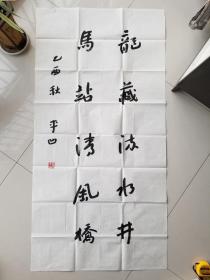 龍藏流水井
馬站清風橋
乙酉秋 平凹